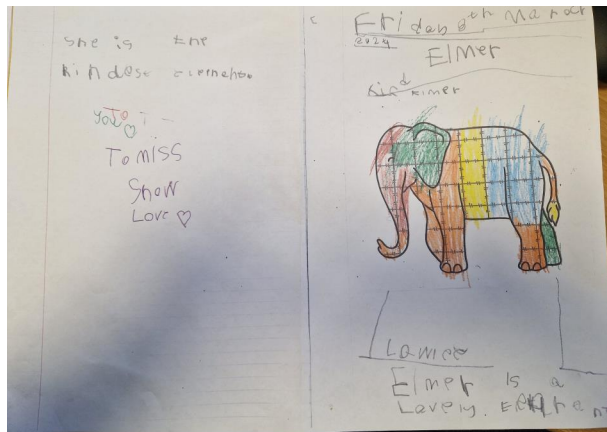 She is the
kindest elephant.
To
you
To Miss
Snow
Love
Friday 8th March
2024
Elmer
Kind Elmer
Elmer is a
Lovely.